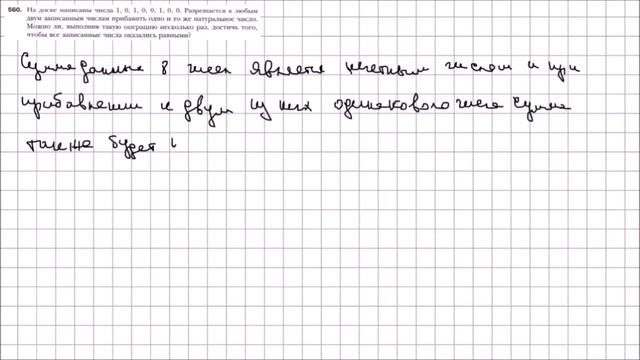 560. На доске написаны числа 1, 0, 1, 0, 0, 1, 0, 0. Разрешается к любым
двум записанным числам прибавить одно и то же натуральное число.
Можно ли, выполнив такую операцию несколько раз, достичь того,
чтобы все записанные числа оказались равными?
Сумма данных 8 чисел является нечетным числом и при
прибавлении к двум из них одинакового числа сумма
также будет